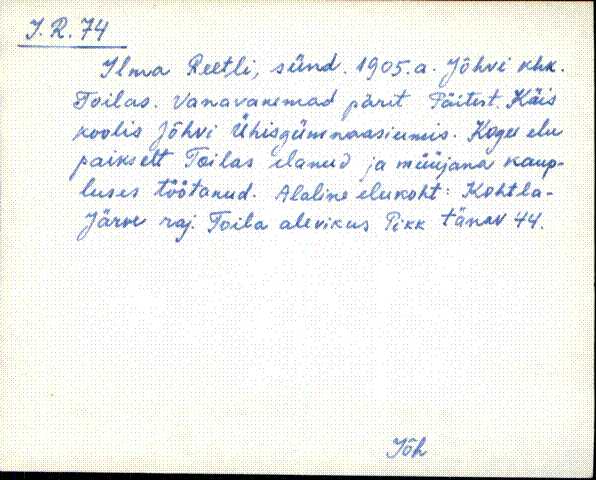 I. R. 74
Ilma Reetli, sünd. 1905. a. Jõhvi khk.
Toilas. Vanavanemad pärit Päitest. Käis
koolis Jõhvi Ühisgümnaasiumis. Kogu elu
paikselt Toilas elanud ja müüjana kaup-
luses töötanud. Alaline elukoht: Kohtla-
Järve raj. Toila alevikus Pikk tänav 44.
Jõh